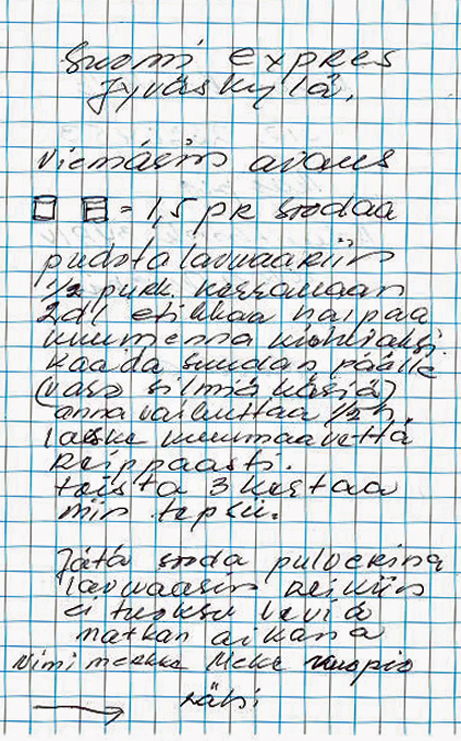 Suomi expres
Jyväskylä.
viemärin avaus
= 1,5 prk soodaa
pudota lavuaariin
1/2 purk kerrallaan
2dl etikkaa halpaa
kuumenna kiehuvaksi
kaada soodan päälle
(varo silmiä käsiä)
anna vaikuttaa 1/2 h.
laske kuumaa vettä
reippaasti.
toista 3 kertaa
niin tepsii.
Jätä sooda pulverina
lavuaarin reikiin
ei tuoksu leviä
matkan aikana
Nimimerkki Kuopio